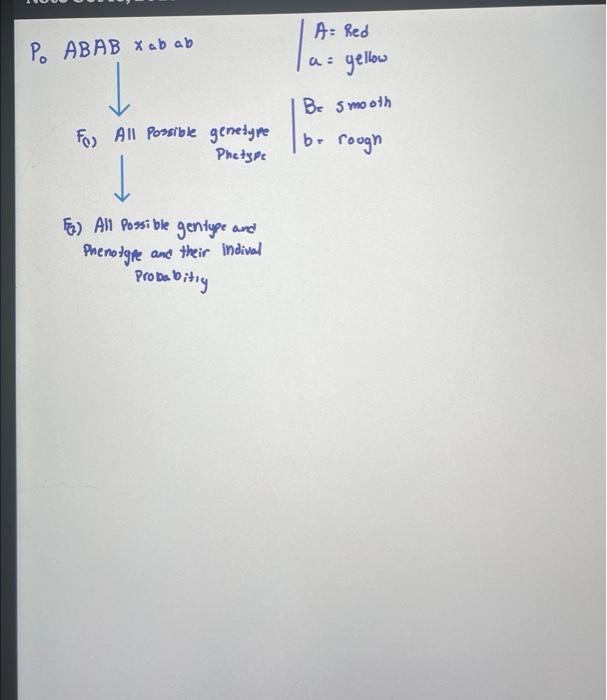 P₀ ABAB x ab ab
A = Red
a = yellow
B = smooth
b = rough
F₍₁₎ All Possible genetype
Phetype
F₍₂₎ All Possible gentype and
Phenotype and their indival
Probabitiy